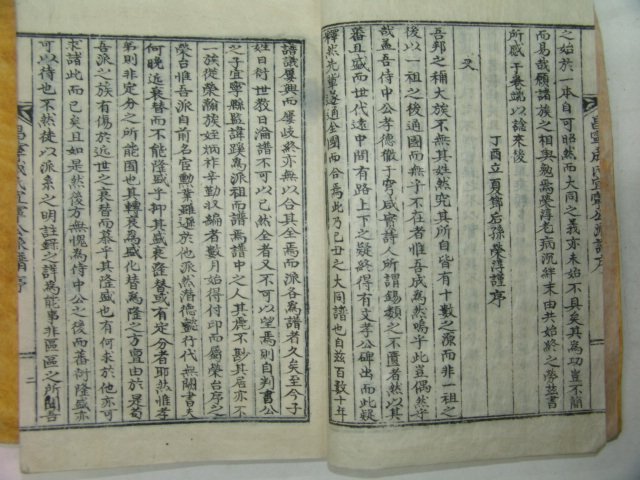 之始族一本自可昭然而大同之義亦未始不具矣其爲功豈不簡
而易哉願諸族之相與勉焉榮淳老病沉綿末由共始終之勞玆書
所感于卷端以諗來後
丁酉立夏節后孫榮淳謹序
又
吾邦之稱大族不無其姓然究其所自皆有十數之源而非一祖之
後以一祖之 而無乎不在者惟吾成爲然嗚乎此豈偶然乎
哉盖吾侍中公孝德徹于穹 實詩人所謂錫類之不匱者然以其
蕃且盛而世代遠中間有路上下之疑終得有文孝公碑出而此疑
釋然先輩遂通全國而合焉此乃己丑之大同譜也自玆百數十年
昌寧成氏宜寧公派譜 序
譜議屢興而屢歧終亦無以合其全焉而派各爲譜者久矣至今子
姓日衍世敎日淪譜不可以 全者又不可以望焉則自判書公
之子宜寧縣監諱蹊爲派祖而譜焉譜中之人其麗不尠其居亦不
一族從榮瀚族姪炳祚辛勤收 者數月始得付印而屬榮台序之
榮台惟吾派自前名官勳業雖遜於他派然潛德懿行代無闕書夫
何晚近衰替而不能隆盛乎抑其盛衰隆替或有定分者耶然惟孝
弟則非定分之所能囿也其轉衰爲盛化替爲隆之方亶由於是苟
吾派之族有傷於近世之衰替而慕乎其隆盛也有何求於他亦可
求諸此而已矣且如是然後方無愧爲侍中公之後而蕃衍隆盛亦
可以待也不然徒以派系之明註錄之詳爲能事非區區之所 吾
昌寧成氏宜寧公派譜 序 二